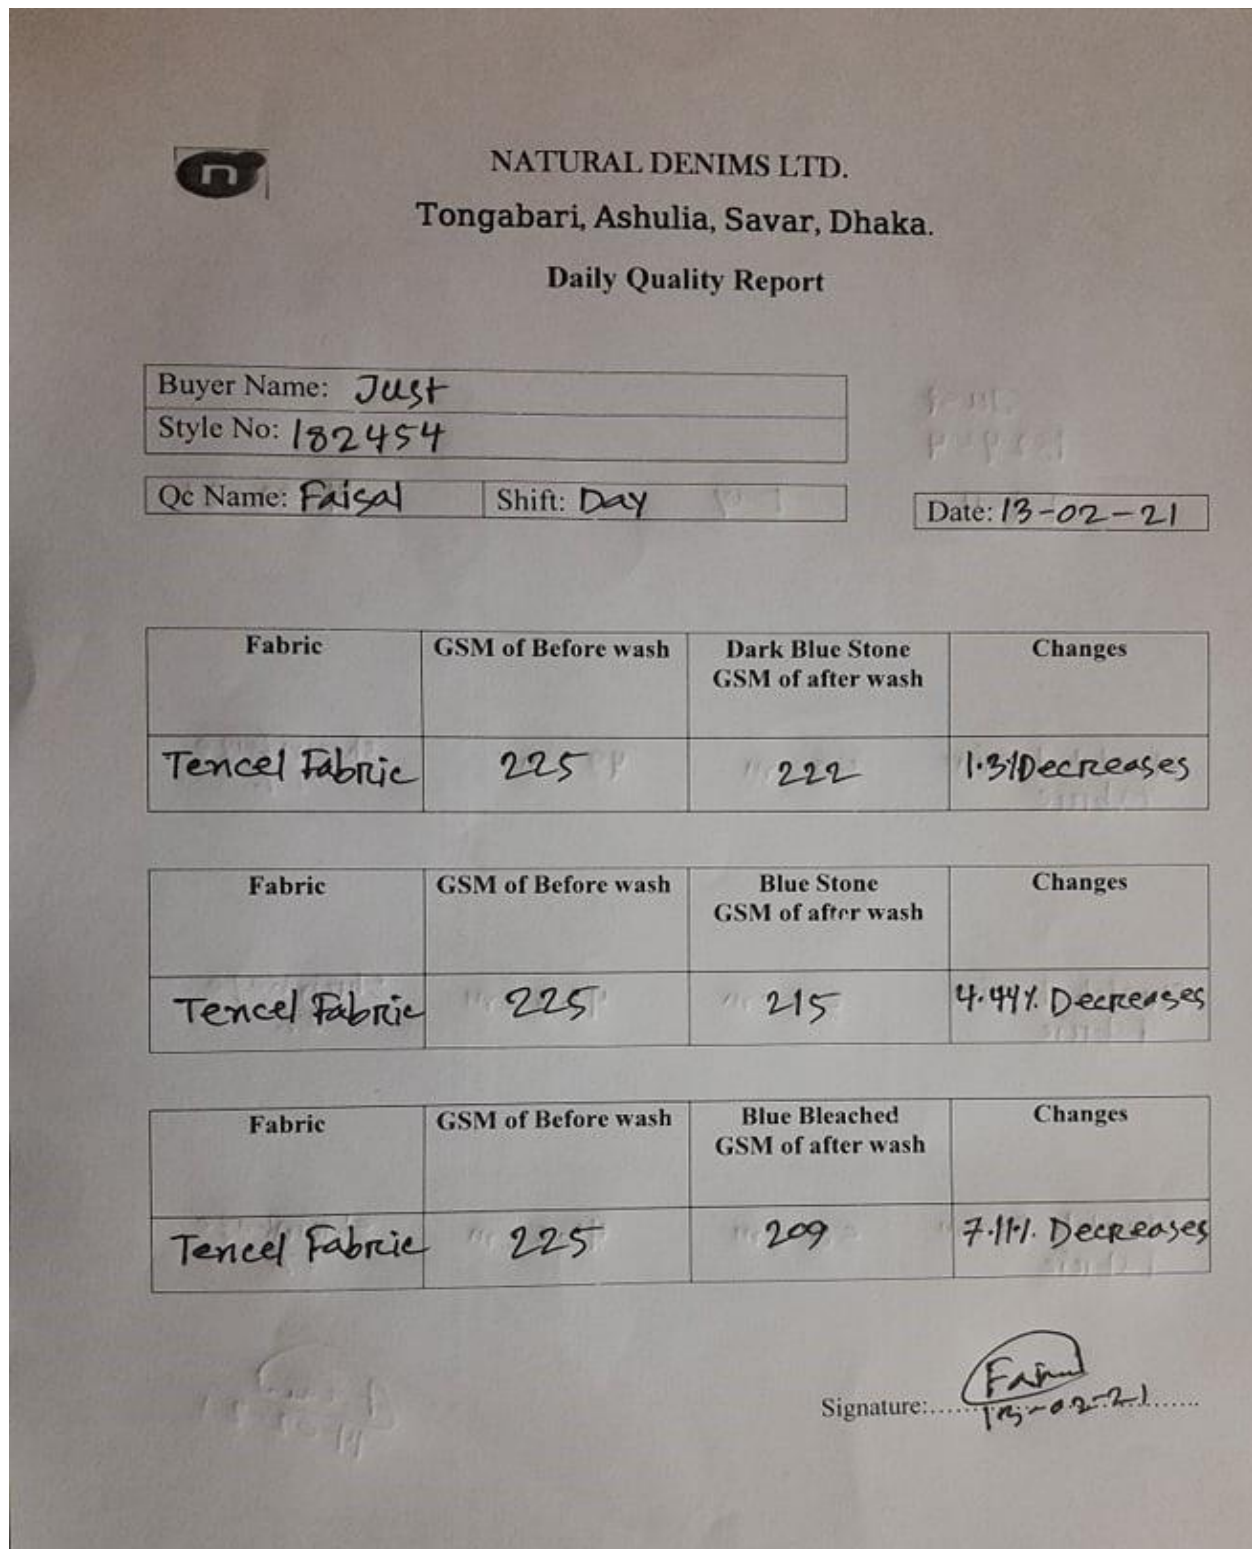 n
NATURAL DENIMS LTD.
Tongabari, Ashulia, Savar, Dhaka.
Daily Quality Report
Buyer Name: Just
Style No: 182454
Qc Name: Faisal Shift: Day Date: 13-02-21
Fabric GSM of Before wash Dark Blue Stone GSM of after wash Changes
Tencel Fabric 225 222 1.3% Decreases
Fabric GSM of Before wash Blue Stone GSM of after wash Changes
Tencel Fabric 225 215 4.44% Decreases
Fabric GSM of Before wash Blue Bleached GSM of after wash Changes
Tencel Fabric 225 209 7.11% Decreases
Signature:
13-02-21